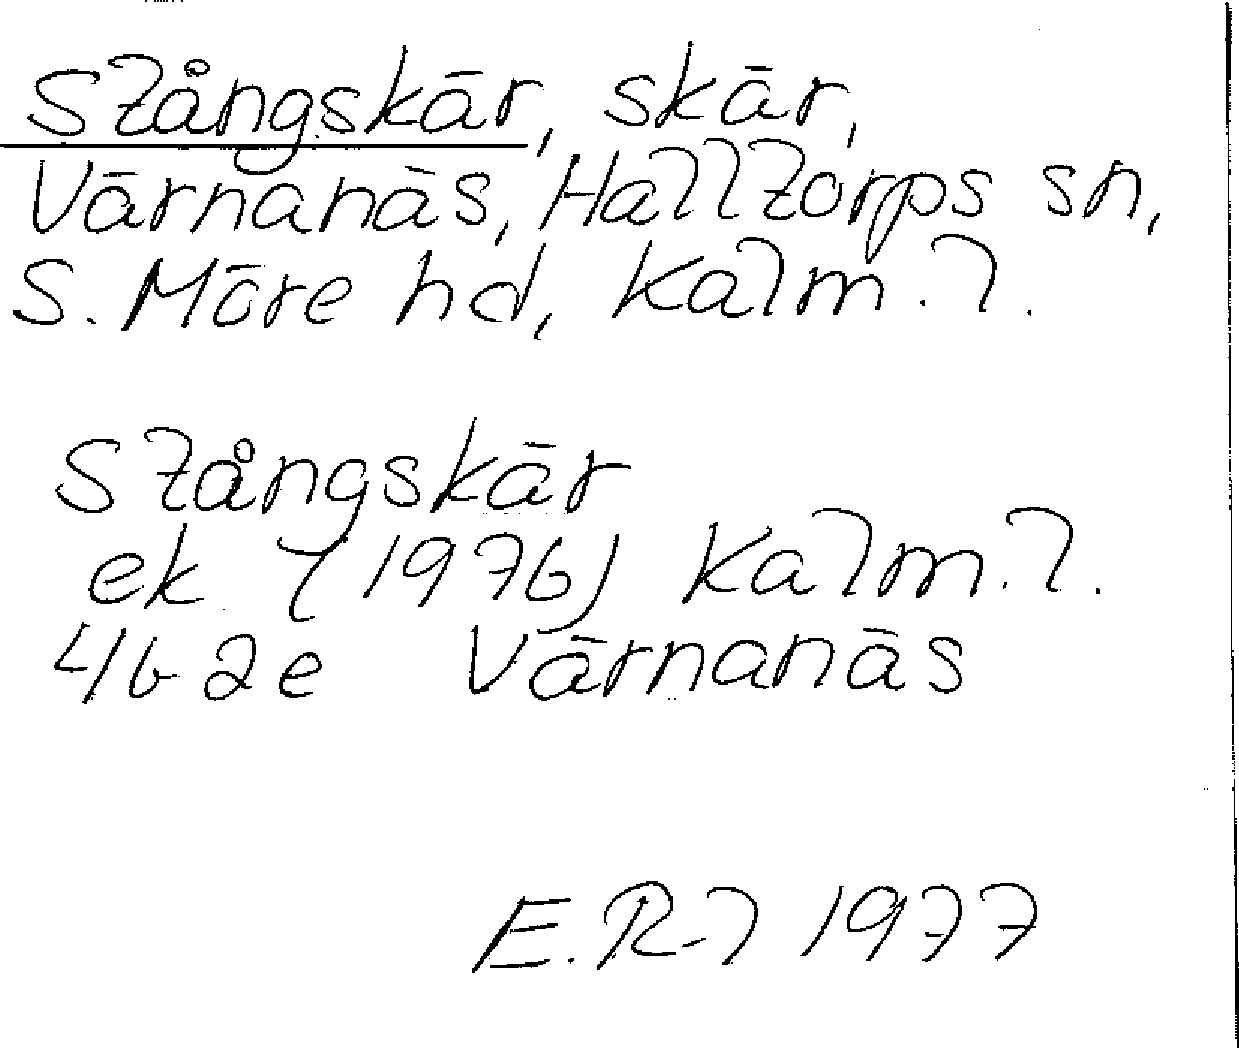 Stångskär, skär,
Värnanäs, Halltorps sn,
S. Möre hd, Kalm. l.
Stångskär
ek (1976) Kalm. l.
4G 2e Värnanäs
E. R-l 1977